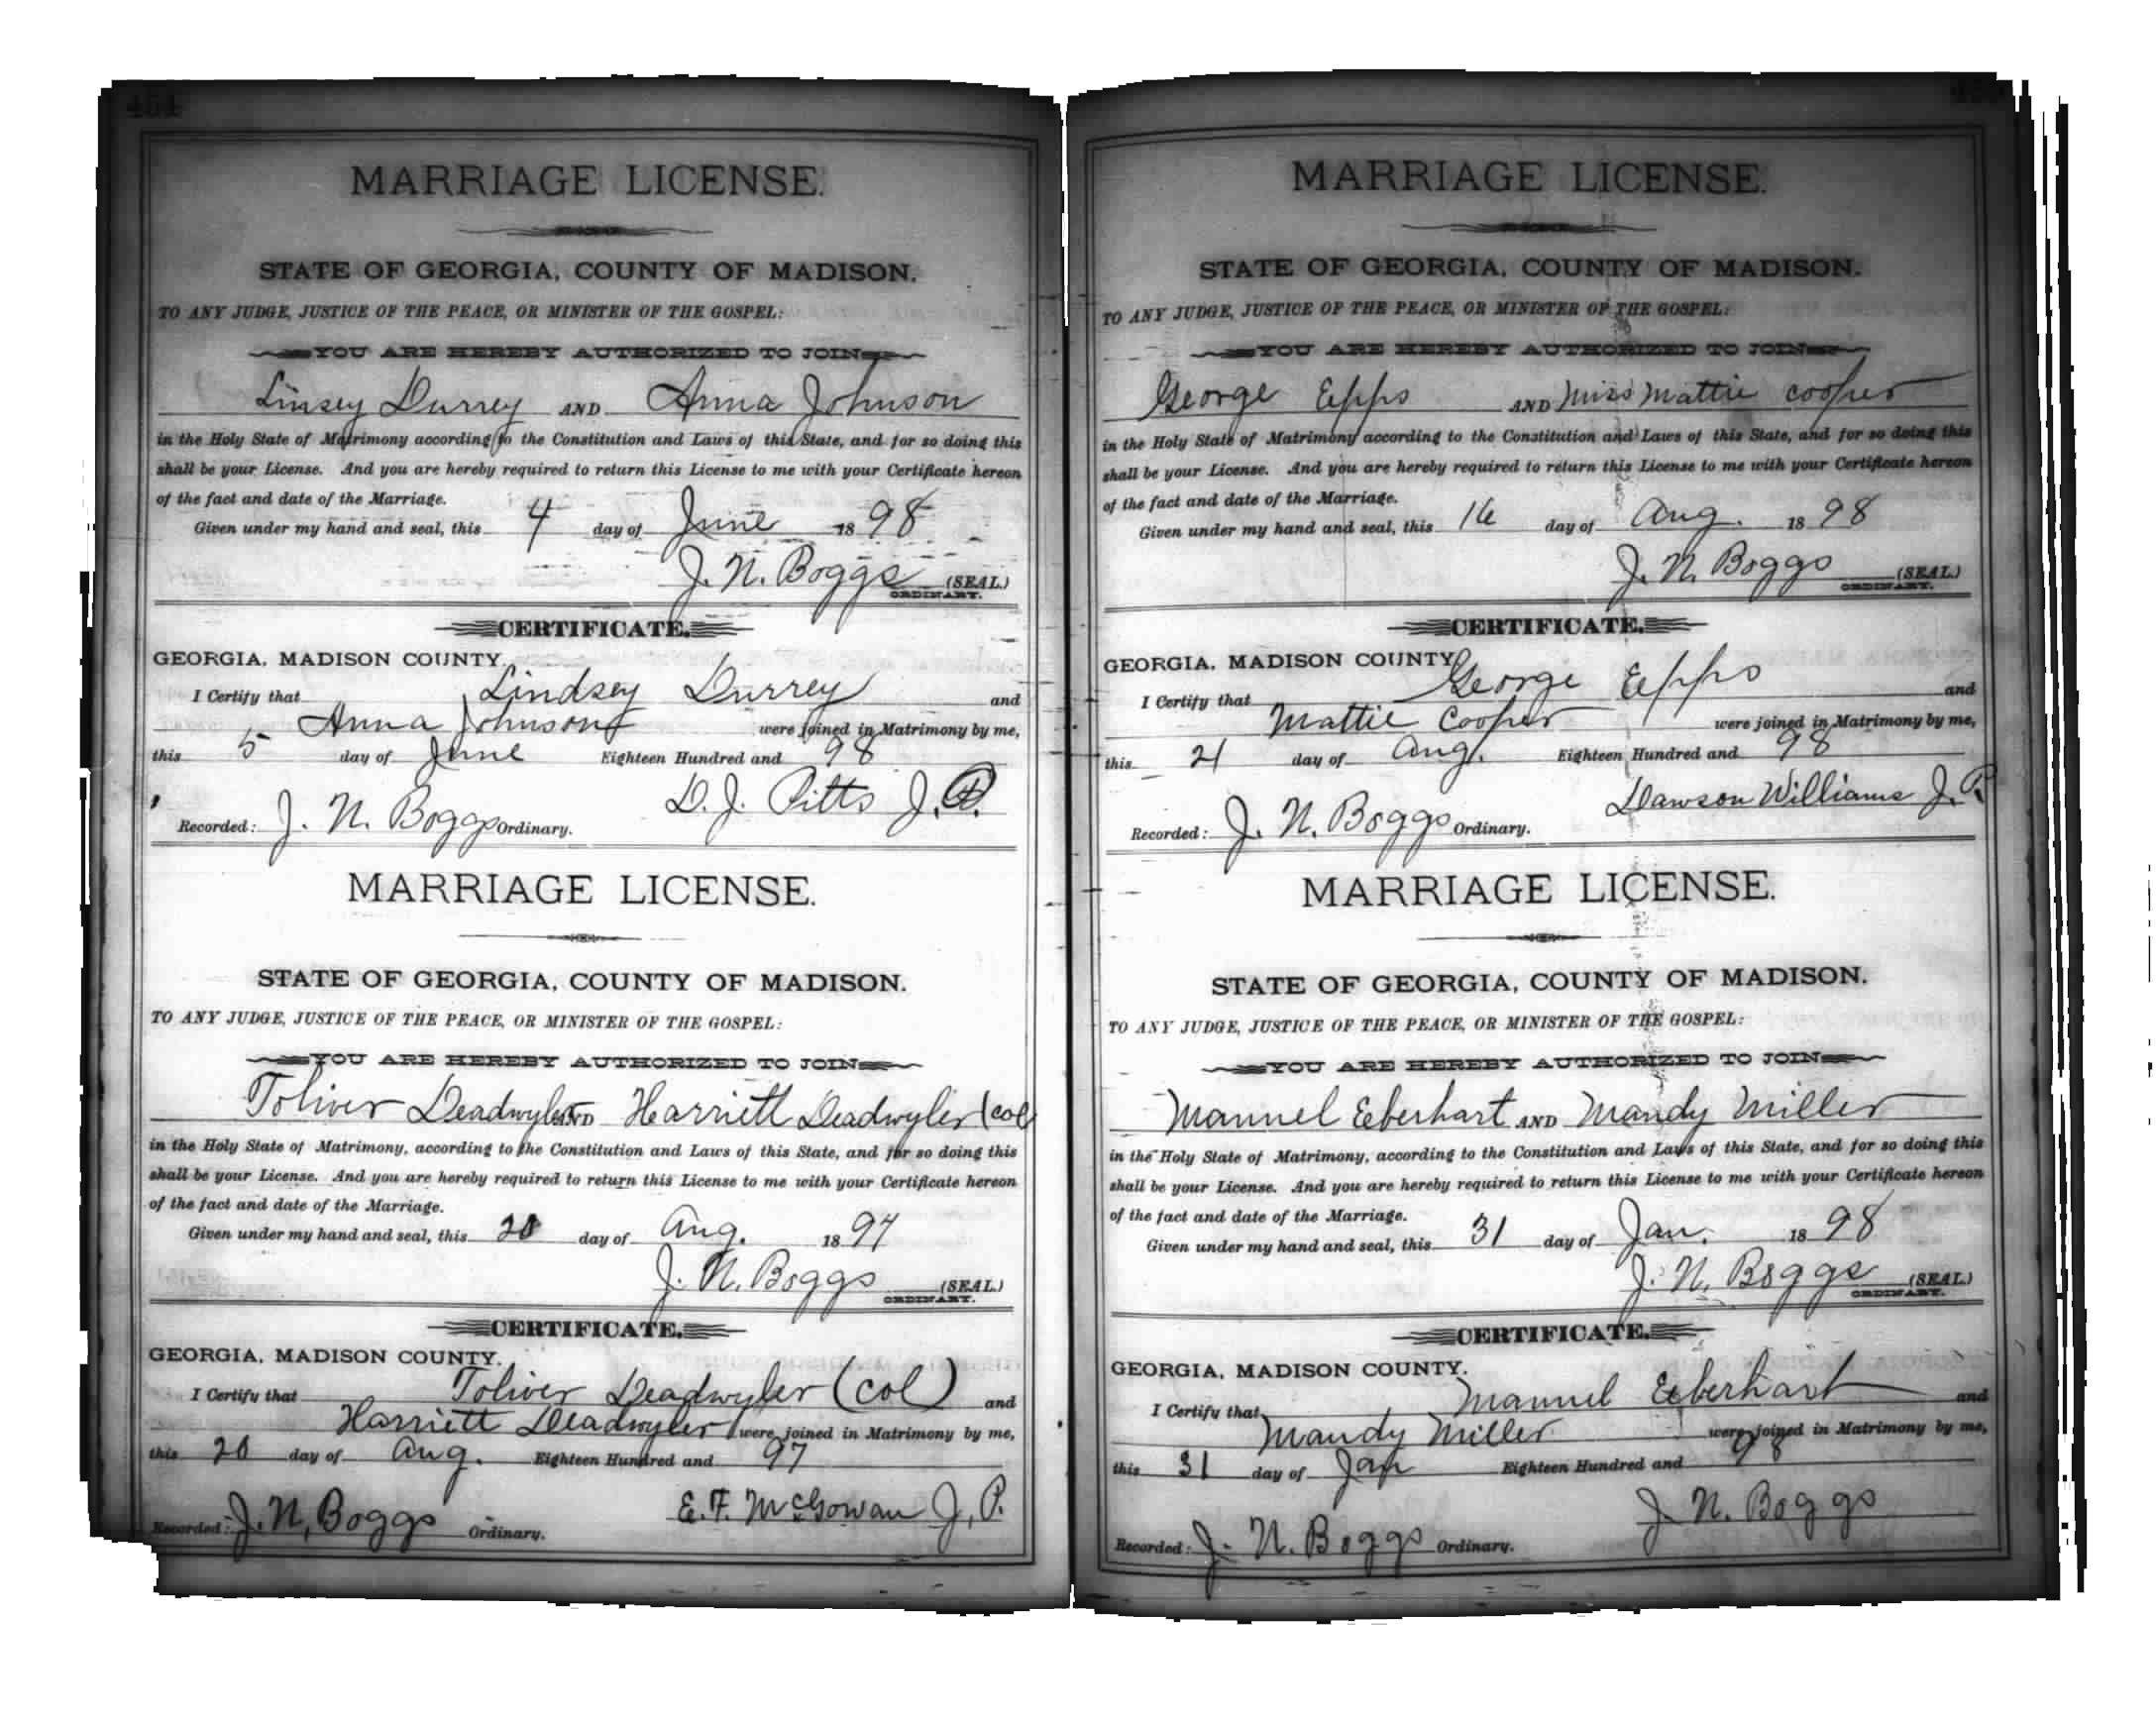 454
MARRIAGE LICENSE.
STATE OF GEORGIA, COUNTY OF MADISON.
TO ANY JUDGE, JUSTICE OF THE PEACE, OR MINISTER OF THE GOSPEL:
YOU ARE HEREBY AUTHORIZED TO JOIN
Linsey Durrey AND Anna Johnson
in the Holy State of Matrimony according to the Constitution and Laws of this State, and for so doing this
shall be your License. And you are hereby required to return this License to me with your Certificate hereon
of the fact and date of the Marriage.
Given under my hand and seal, this 4 day of June 1898
J. N. Boggs (SEAL.)
ORDINARY.
CERTIFICATE.
GEORGIA, MADISON COUNTY.
I Certify that Lindsey Durrey and
Anna Johnson were joined in Matrimony by me,
this 5 day of June Eighteen Hundred and 98
D. J. Pitts J. P.
Recorded: J. N. Boggs Ordinary.
MARRIAGE LICENSE.
STATE OF GEORGIA, COUNTY OF MADISON.
TO ANY JUDGE, JUSTICE OF THE PEACE, OR MINISTER OF THE GOSPEL:
YOU ARE HEREBY AUTHORIZED TO JOIN
Toliver Deadwyler AND Harriett Deadwyler (col
in the Holy State of Matrimony, according to the Constitution and Laws of this State, and for so doing this
shall be your License. And you are hereby required to return this License to me with your Certificate hereon
of the fact and date of the Marriage.
Given under my hand and seal, this 20 day of Aug. 1897
J. N. Boggs (SEAL.)
ORDINARY.
CERTIFICATE.
GEORGIA, MADISON COUNTY.
I Certify that Toliver Deadwyler (col) and
Harriett Deadwyler were joined in Matrimony by me,
this 20 day of Aug. Eighteen Hundred and 97
E. F. McGowan J. P.
Recorded: J. N. Boggs Ordinary.
MARRIAGE LICENSE.
STATE OF GEORGIA, COUNTY OF MADISON.
TO ANY JUDGE, JUSTICE OF THE PEACE, OR MINISTER OF THE GOSPEL:
YOU ARE HEREBY AUTHORIZED TO JOIN
George Epps AND Miss Mattie Cooper
in the Holy State of Matrimony according to the Constitution and Laws of this State, and for so doing this
shall be your License. And you are hereby required to return this License to me with your Certificate hereon
of the fact and date of the Marriage.
Given under my hand and seal, this 16 day of Aug. 1898
J. N. Boggs (SEAL.)
ORDINARY.
CERTIFICATE.
GEORGIA, MADISON COUNTY.
I Certify that George Epps and
Mattie Cooper were joined in Matrimony by me,
this 21 day of Aug. Eighteen Hundred and 98
Dawson Williams J. P.
Recorded: J. N. Boggs Ordinary.
MARRIAGE LICENSE.
STATE OF GEORGIA, COUNTY OF MADISON.
TO ANY JUDGE, JUSTICE OF THE PEACE, OR MINISTER OF THE GOSPEL:
YOU ARE HEREBY AUTHORIZED TO JOIN
Mannuel Eberhart AND Mandy Miller
in the Holy State of Matrimony, according to the Constitution and Laws of this State, and for so doing this
shall be your License. And you are hereby required to return this License to me with your Certificate hereon
of the fact and date of the Marriage.
Given under my hand and seal, this 31 day of Jan. 1898
J. N. Boggs (SEAL.)
ORDINARY.
CERTIFICATE.
GEORGIA, MADISON COUNTY.
I Certify that Mannuel Eberhart and
Mandy Miller were joined in Matrimony by me,
this 31 day of Jan Eighteen Hundred and 98
J. N. Boggs
Recorded: J. N. Boggs Ordinary.